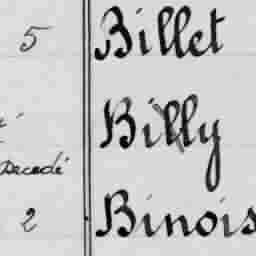 5 Billet
Billy
Decedé
2 Binois